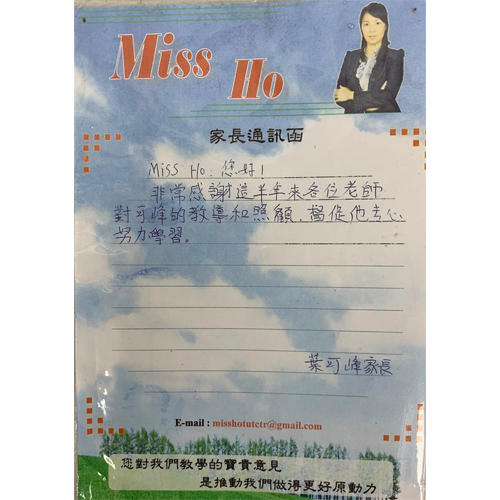 Miss Ho
家長通訊函
Miss Ho: 您好!
非常感謝這半年來各位老師
對可峰的教導和照顧,督促他去心
努力學習。
葉可峰家長
E-mail : misshotutctr@gmail.com
您對我們教學的寶貴意見
是推動我們做得更好原動力